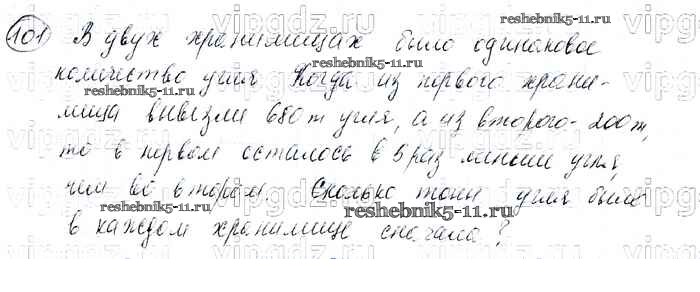 101 В двух хранилищах было одинаковое
количество угля Когда из первого храни-
лища вывезли 680 т угля, а из второго - 200 т,
то в первом осталось в 5 раз меньше угля,
чем во втором. Сколько тонн угля было
в каждом хранилище сначала?
reshebnik5-11.ru
reshebnik5-11.ru
reshebnik5-11.ru
reshebnik5-11.ru
reshebnik5-11.ru
vipgdz.ru